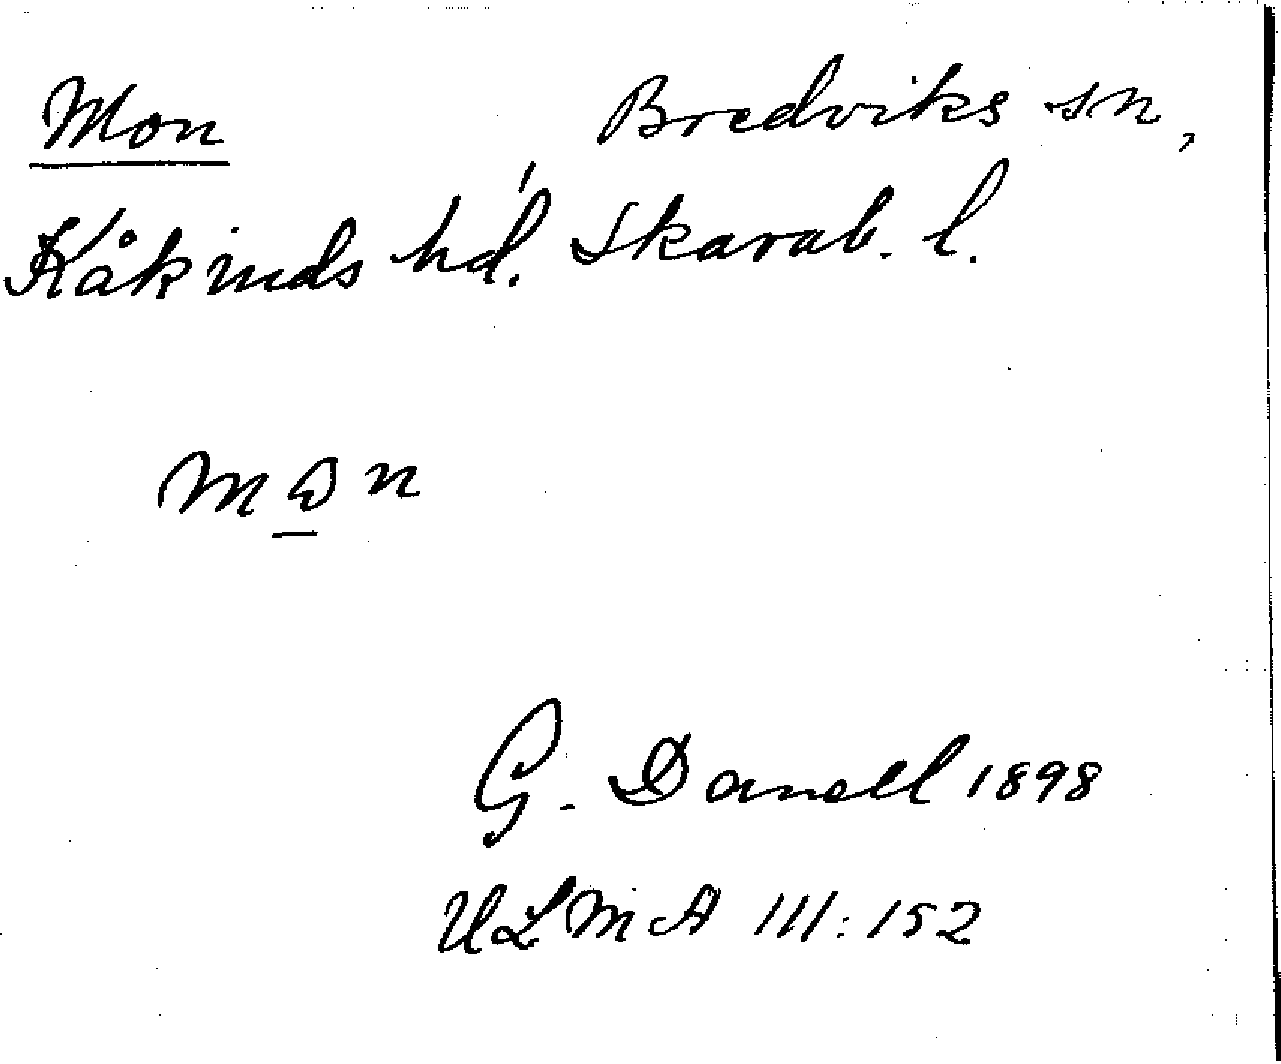 Mon Bredviks sn,
Kåkinds hd. Skarab. l.
G. Danell 1898
ULMA III:152